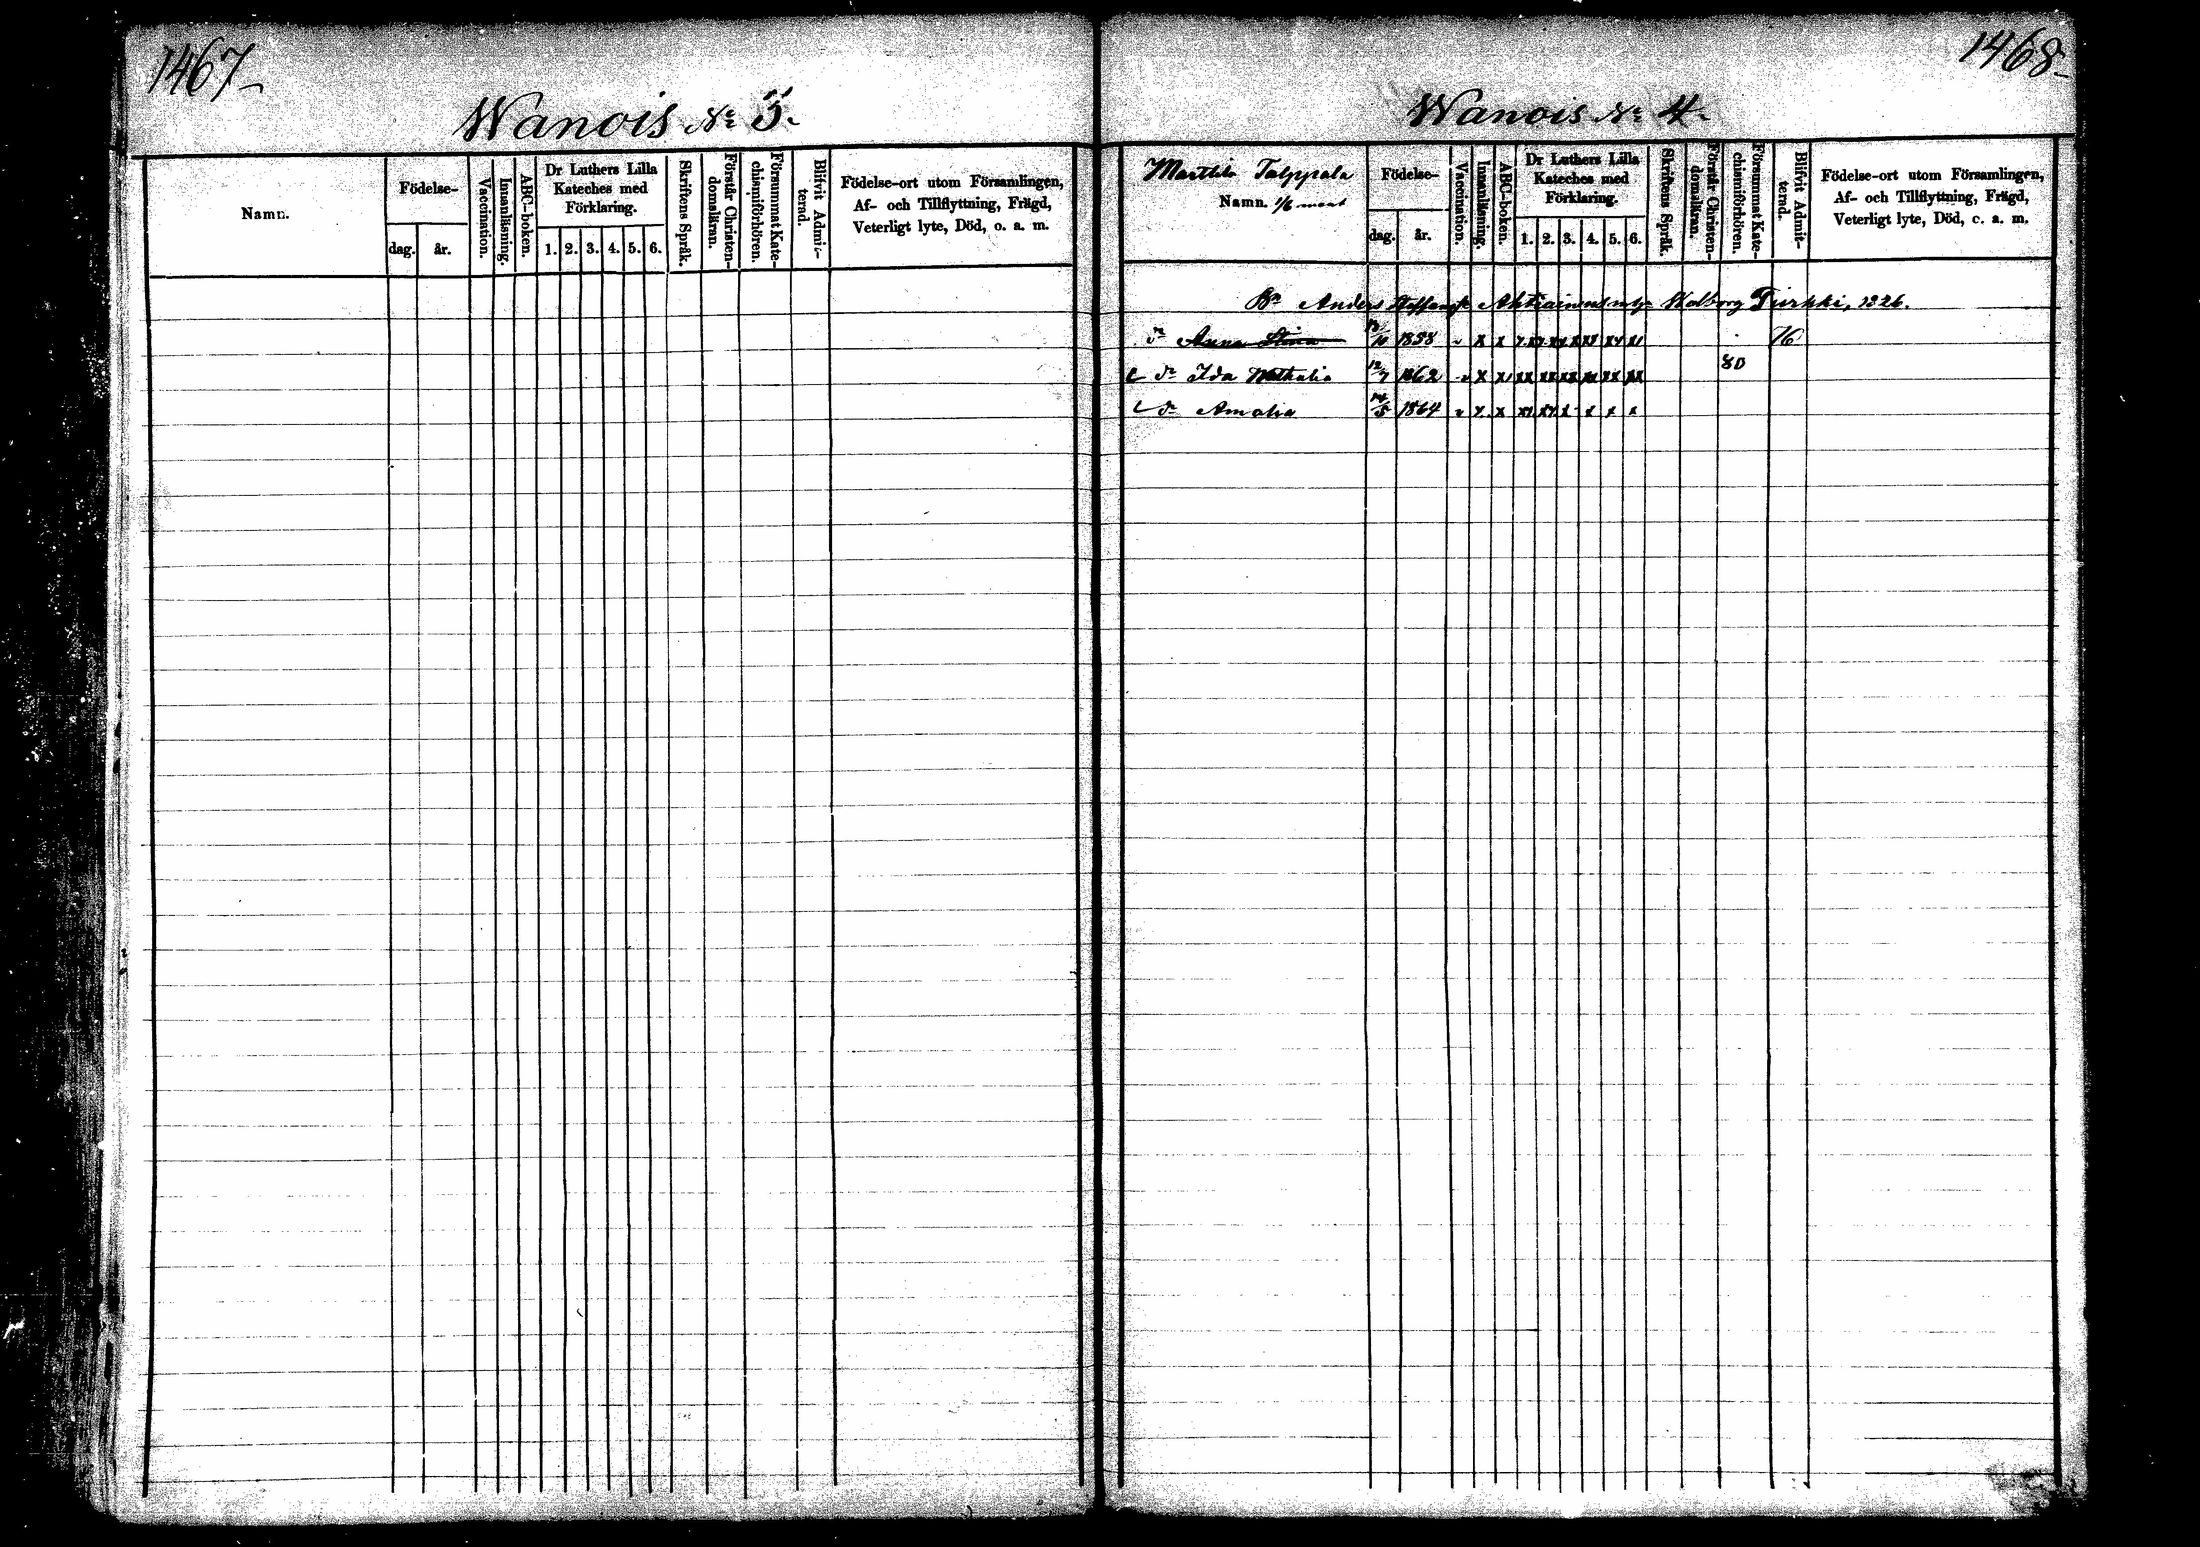 1467
Wanois № 3.
Namn.
Födelse-
dag. år.
Vaccination.
Innanläsning.
ABC-boken.
Dr Luthers Lilla
Kateches med
Förklaring.
1. 2. 3. 4. 5. 6.
Skriftens Språk.
Förstår Christen-
domsläran.
Försummat Kate-
chismiförhören.
Blifvit Admit-
terad.
Födelse-ort utom Församlingen,
Af- och Tillflyttning, Frägd,
Veterligt lyte, Död, o. a. m.
1468
Wanois № 4.
Marttila Talppala
Namn. 1/6 mant
Födelse-
dag. år.
Vaccination.
Innanläsning.
ABC-boken.
Dr Luthers Lilla
Kateches med
Förklaring.
1. 2. 3. 4. 5. 6.
Skriftens Språk.
Förstår Christen-
domsläran.
Försummat Kate-
chismiförhören.
Blifvit Admit-
terad.
Födelse-ort utom Församlingen,
Af- och Tillflyttning, Frägd,
Veterligt lyte, Död, c. a. m.
Bn Anders Ahtiainens Walborg Turkki, 1326.
dr Anna Stina 1858 76
dr Ida Nathalia 12/7 1862 80
dr Amalia 14/5 1864